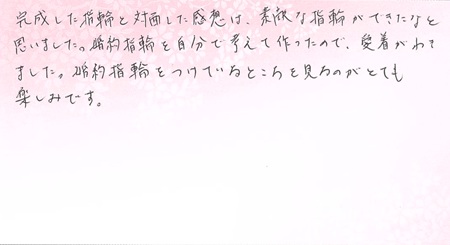 完成した指輪と対面した感想は、素敵な指輪ができたなと
思いました。婚約指輪を自分で考えて作ったので、愛着がわき
ました。婚約指輪をつけているところを見るのがとても
楽しみです。